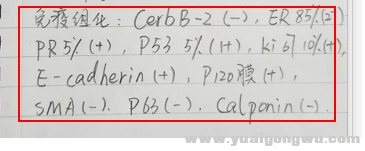 免疫组化: CerbB-2 (-), ER 85% (2+)
PR 5% (+), P53 5% (1+), ki 67 10% (+),
E-cadherin (+), P120膜(+),
SMA (-). P63 (-). Calponin (-).
www.yuaigongwu.com